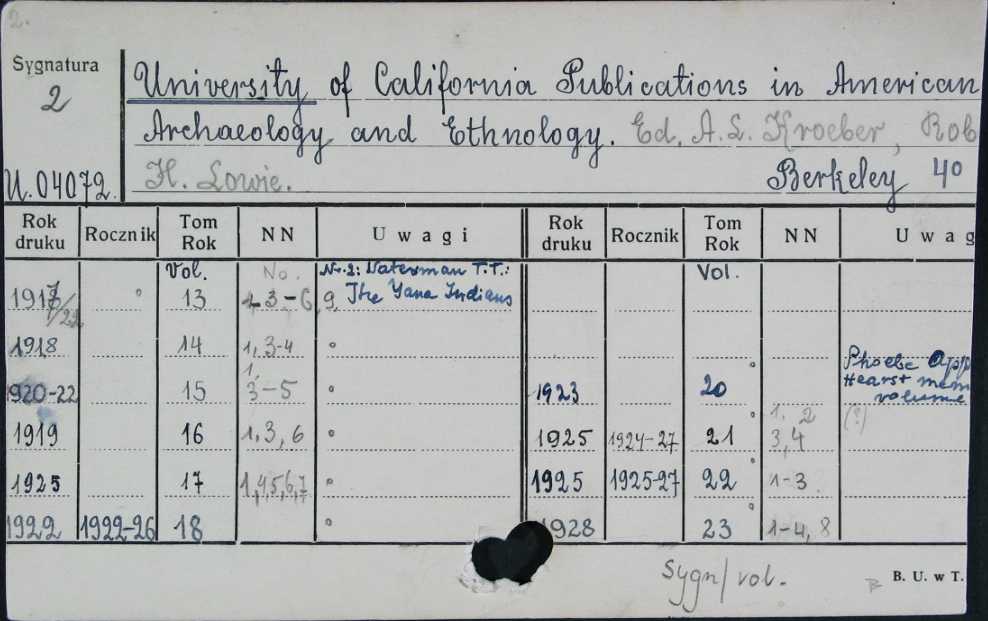 2.
Sygnatura
2
U.04072.
University of California Publications in American
Archaeology and Ethnology. Ed. A. L. Kroeber, Rob
H. Lowie.
Berkeley 4o
Rok druku Rocznik Tom Rok NN Uwagi Rok druku Rocznik Tom Rok NN Uwag
Vol. No. Nr. 2: Waterman T.T.: Vol.
1917/22 13 1-3-6, 9. The Yana Indians
1918 14 1, 3-4
1920-22 15 1, 3-5 1923 20 Phoebe App Hearst mem volume
1919 16 1, 3, 6 1925 1924-27 21 1, 2 3, 4 (?)
1925 17 1, 4, 5, 6, 7 1925 1925-27 22 1-3
1922 1922-26 18 1928 23 1-4, 8
Sygn/vol.
B. U. w T.